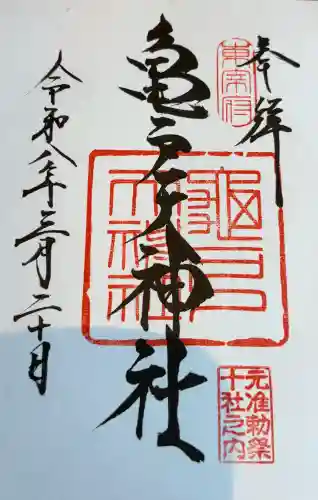 奉拝
東宰府
亀戸天神社
亀戸天神社
元准勅祭
十社之内
令和八年三月二十日